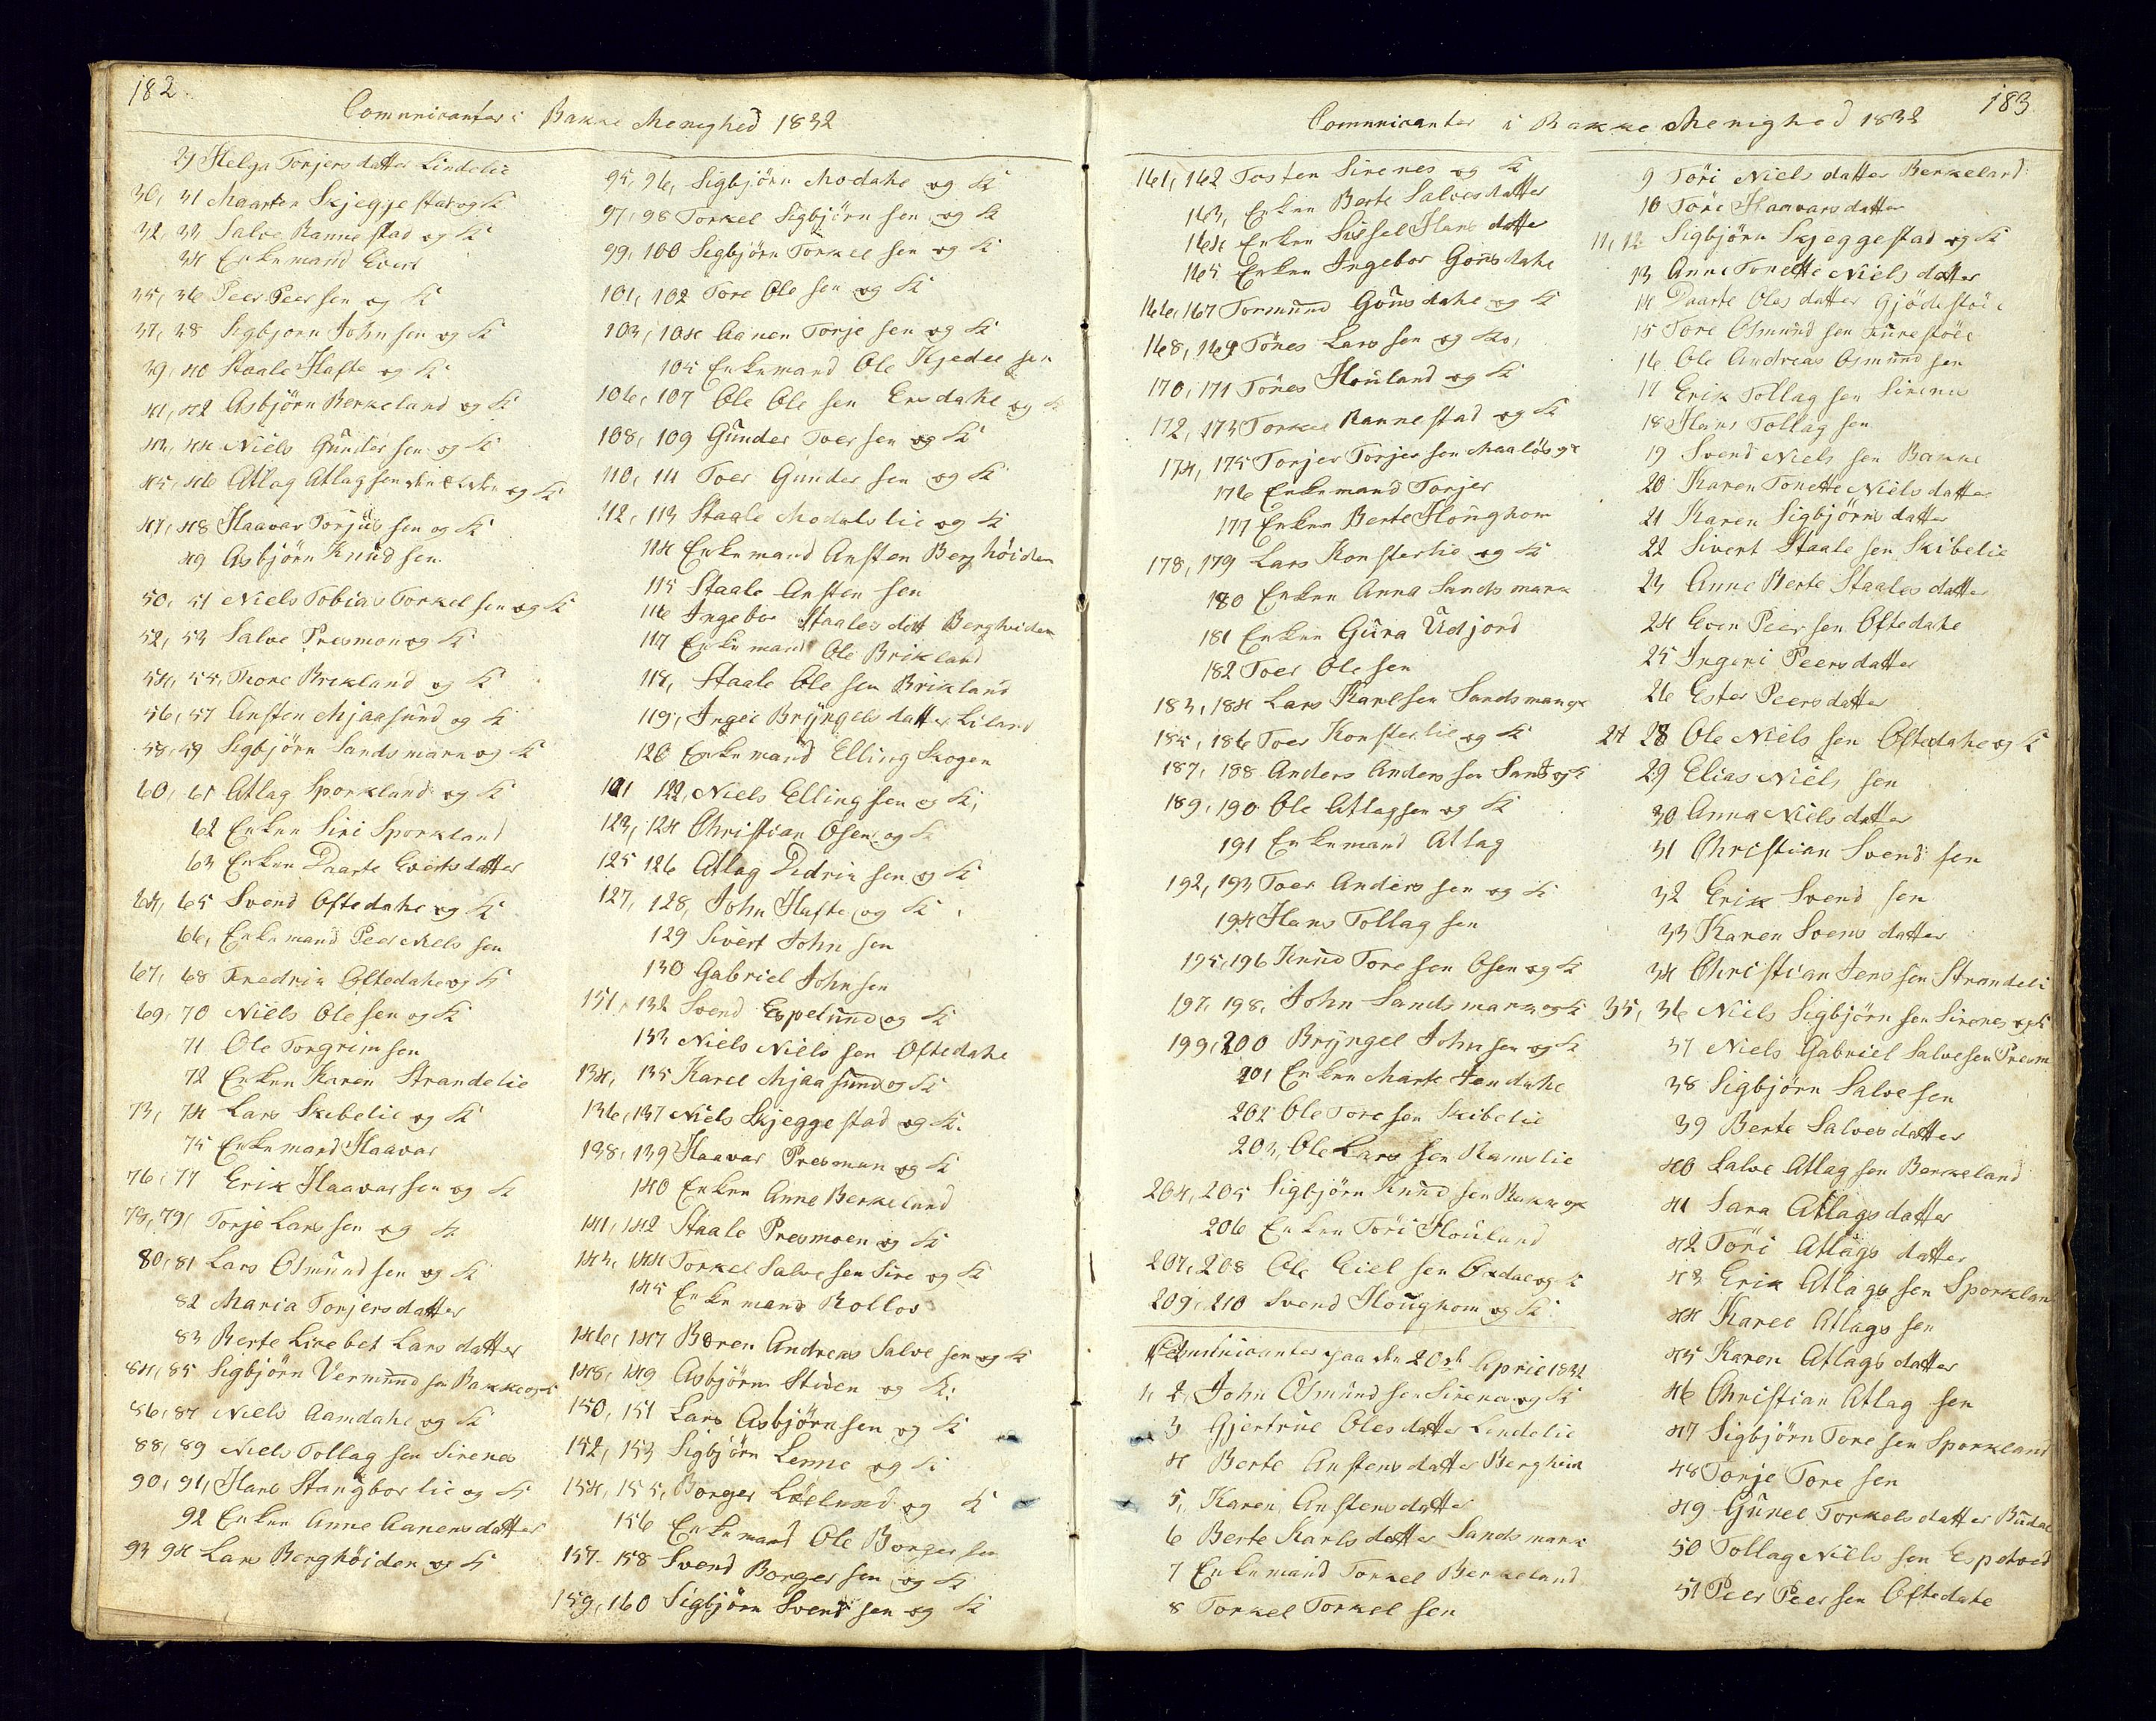 182
Comunicanter i Bakke Menighed 1832
29 Helga Torjers datter Lindelie
30, 31 Maarten Skjeggestad og K
32, 33 Salve Rannestad og K
34 Enkemand Evert
35, 36 Peer Peersen og K
37, 38 Sigbjorn Johnsen og K
39, 40 Staale Hafte og K
41, 42 Asbjörn Berkeland og K
43, 44 Niels Gundersen og K
45, 46 Atlag Atlagsen og K
47, 48 Haavar Torjüssen og K
49 Asbjörn Knudsen
50, 51 Niels Tobias Torkelsen og K
52, 53 Salve Presmon og K
54, 55, Thore Brekland og K
56, 57 Ansten Mjaasund og K
58, 59 Sigbjörn Sandsmark og K
60, 61 Atlag Sporkland og K
62 Enken Siri Sporkland
63 Enken Daarte Evertsdatter
64, 65 Svend Oftedahl og K
66, Enkemand Peer Nielssen
67, 68 Fredrik Oftedahl og K
69, 70 Niels Olesen og K
71 Ole Torgrimsen
72 Enken Karen Strandelie
73, 74 Lars Skibelie og K
75 Enkemand Haavar
76, 77 Erik Haavarsen og K
78, 79, Torje Larssen og K
80, 81 Lars Osmundsen og K
82 Maria Torjersdatter
83 Berte Lisebet Larsdatter
84, 85 Sigbjörn Vermundsen Bakke og K
86, 87 Niels Aamdahl og K
88, 89 Niels Tollagsen Sirenes
90, 91, Hans Stangborlie og K
92 Enken Anne Aanensdatter
93 94 Lars Berghöiden og K
95, 96, Sigbjörn Modahl og K
97, 98 Torkel Sigbjörnsen og K
99, 100 Sigbjörn Torkelsen og K
101, 102 Tore Olesen og K
103, 104 Aanen Torjesen og K
105 Enkemand Ole Kjedelsen
106, 107 Ole Olesen Ersdahl og K
108, 109 Gunder Toersen og K
110, 111 Toer Gundersen og K
112, 113 Staale Modalslie og K
114 Enkemand Ansten Berghöiden
115 Staale Anstensen
116 Ingebor Staalesdatt Berghviden
117 Enkemand Ole Brikland
118, Staale Olesen Brikland
119, Inger Bryngelsdatter Liland
120 Enkemand Elling Skogen
121 122, Niels Ellingsen og K,
123, 124 Christian Osen og K
125 126 Atlag Didriksen og K
127, 128, John Hafte og K
129 Sivert Johnsen
130 Gabriel Johnsen
131, 132 Svend Espelund og K
133 Niels Nielssen Oftedahl
134, 135 Karel Mjaasund og K
136, 137 Niels Skjeggestad og K.
138, 139 Haavar Presmun og K
140 Enken Anne Berkeland
141, 142 Staale Presmoen og K
143, 144 Torkel Salvesen Sire og K
145 Enkemand Rollov
146, 147 Børen Andreas Salvesen og K
148, 149 Asbjörn Stiden og K:
150, 151 Lars Asbjörnsen og K
152, 153 Sigbjörn Lenne og K
154, 155, Borger Löelund og K
156 Enkemand Ole Borgersen
157- 158 Svend Borgersen og K
159, 160 Sigbjörn Svendsen og K
183
Comunicanter i Bakke Menighed 1832
161, 162 Tosten Sirenes og K
163, Enken Berte Salvesdatter
164 Enken Sissel Hansdatter
165 Enken Ingebor Gousdahl
166, 167 Tormund Gousdahl og K
168, 169 Tönes Larssen og Ko,
170, 171 Tönes Houland og K
172, 173 Torkel Rannestad og K
174, 175 Torjer Torjersen Maalös og K
176 Enkemand Torjer
177 Enken Berte Houghom
178, 179 Lars Konsterlie og K
180 Enken Anna Sandsmark
181 Enken Gura Udjord
182 Toer Olesen
183, 184 Lars Karelsen Sandsmark og K
185, 186 Toer Konsterlie og K
187, 188 Anders Anderssen Sands og K
189, 190 Ole Atlagsen og K
191 Enkemand Atlag
192, 193 Toer Anderssen og K
194 Hans Tollagsen
195, 196 Knud Toresen Osen og K
197, 198, John Sandsmark og K
199, 200 Bryngel Johnsen og K
201 Enken Marte Jendahl
202 Ole Toresen Skibelie
203, Ole Larssen Ramslie
204, 205 Sigbjörn Knudsen Bakke og K
206 Enken Töri Houland
207, 208 Ole Eielsen Öxdal og K
209, 210 Svend Houghom og K
Comunicanter paa den 20de April 1832
1, 2, John Osmundsen Sirenes og K
3 Gjertrue Olesdatter Lindelie
4 Berte Anstensdatter Berghein
5, Karen Anstensdatter
6 Berte Karlsdatter Sandsmark
7 Enkemand Torkel Berkeland
8 Torkel Torkelsen
9 Töri Nielsdatter Berkeland
10 Töre Haavarsdatter
11, 12 Sigbjörn Skjeggestad og K
13 Anne Tonette Nielsdatter
14 Daarte Olesdatter Gjödestöl
15 Tore Osmundsen Furestöel
16 Ole Andreas Osmundsen
17 Erik Tollagsen Sirenes
18 Hans Tollagsen
19 Svend Nielssen Bakke
20 Karen Tonette Nielsdatter
21 Karen Sigbjörnsdatter
22 Sivert Staalesen Skibelie
23 Anne Berte Staalesdatter
24 Even Peersen Oftedahl
25 Ingeri Peersdatter
26 Ester Peersdatter
27 28 Ole Nielssen Oftedahl og K
29 Elias Nielssen
30 Anna Nielsdatter
31 Christian Svendsen
32 Erik Svendsen
33 Karen Svensdatter
34 Christian Jenssen Strandeli
35, 36 Niels Sigbjörnsen Sirenes og K
37 Niels Gabriel Salvesen Presm
38 Sigbjörn Salvesen
39 Berte Salvesdatter
40 Salve Atlagsen Berkeland
41 Sara Atlagsdatter
42 Töri Atlagsdatter
43 Erik Atlagssen Sporklan
44 Karel Atlagssen
45 Karen Atlagsdatter
46 Christian Atlagsen
47 Sigbjörn Toresen Sporkland
48 Torje Toresen
49 Gunel Torkelsdatter Budal
50 Tollag Nielssen Espetved
51 Peer Peersen Oftedahl